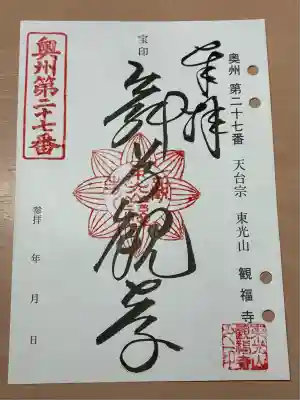 奥州 第二十七番 天台宗 東光山 観福寺
奉拝
宝印
聖観音
奥州第二十七番
参拝 年 月 日